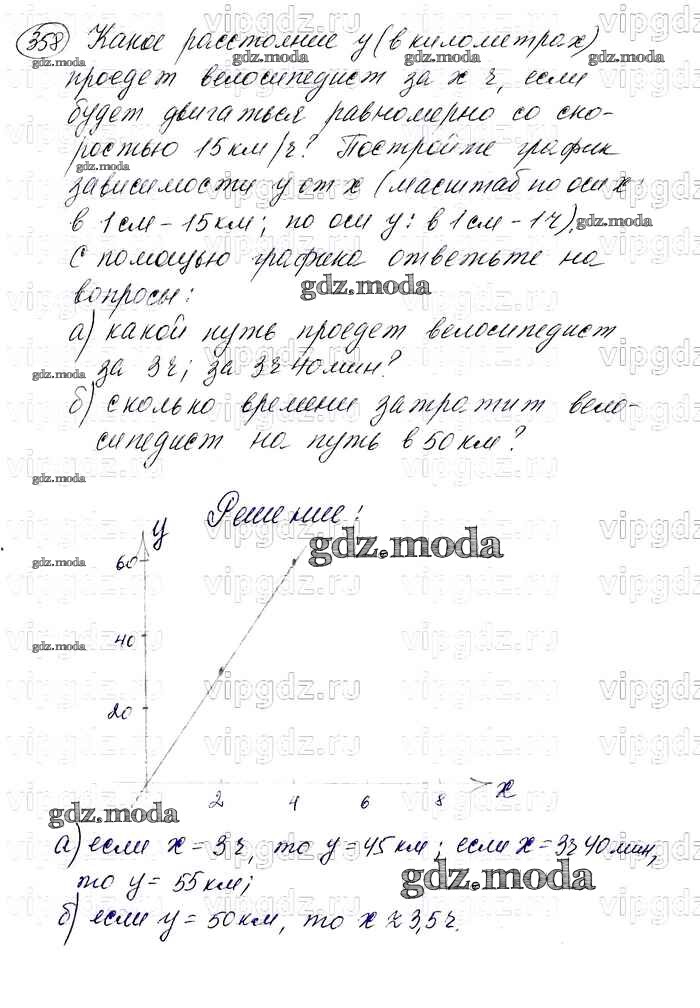 358 Какое расстояние y (в километрах)
проедет велосипедист за x ч, если
будет двигаться равномерно со ско-
ростью 15 км/ч? Постройте график
зависимости y от x (масштаб по оси x:
в 1 см - 15 км; по оси y: в 1 см - 1 ч).
С помощью графика ответьте на
вопросы:
а) какой путь проедет велосипедист
за 3ч; за 3ч 40 мин?
б) сколько времени затратит вело-
сипедист на путь в 50 км?
Решение:
y
60
40
20
2 4 6 8 x
а) если x = 3ч, то y = 45 км; если x = 3ч 40 мин,
то y = 55 км;
б) если y = 50 км, то x ≈ 3,5 ч.
gdz.moda
vipgdz.ru